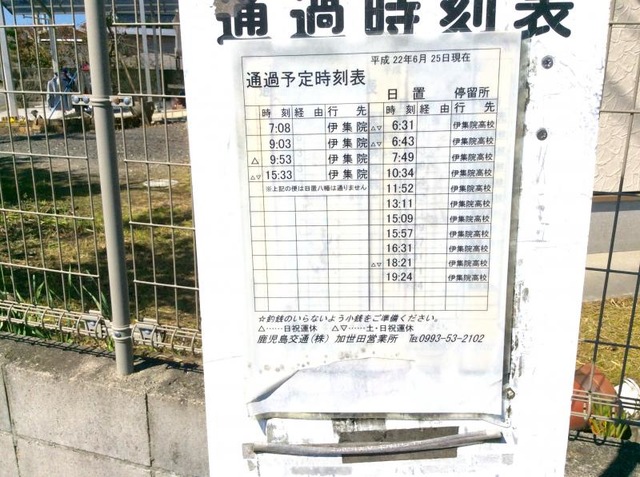 通過時刻表
平成 22年6月 25日現在
通過予定時刻表
日 置 停留所
時 刻 経 由 行 先 時 刻 経 由 行 先
7:08 伊 集 院 △▽ 6:31 伊集院高校
9:03 伊 集 院 △▽ 6:43 伊集院高校
△ 9:53 伊 集 院 7:49 伊集院高校
△▽ 15:33 伊 集 院 10:34 伊集院高校
※上記の便は日置八幡は通りません 11:52 伊集院高校
13:11 伊集院高校
15:09 伊集院高校
15:57 伊集院高校
16:31 伊集院高校
△▽ 18:21 伊集院高校
19:24 伊集院高校
☆釣銭のいらないよう小銭をご準備ください。
△……日祝運休 △▽……土・日祝運休
鹿児島交通(株) 加世田営業所 ℡0993-53-2102